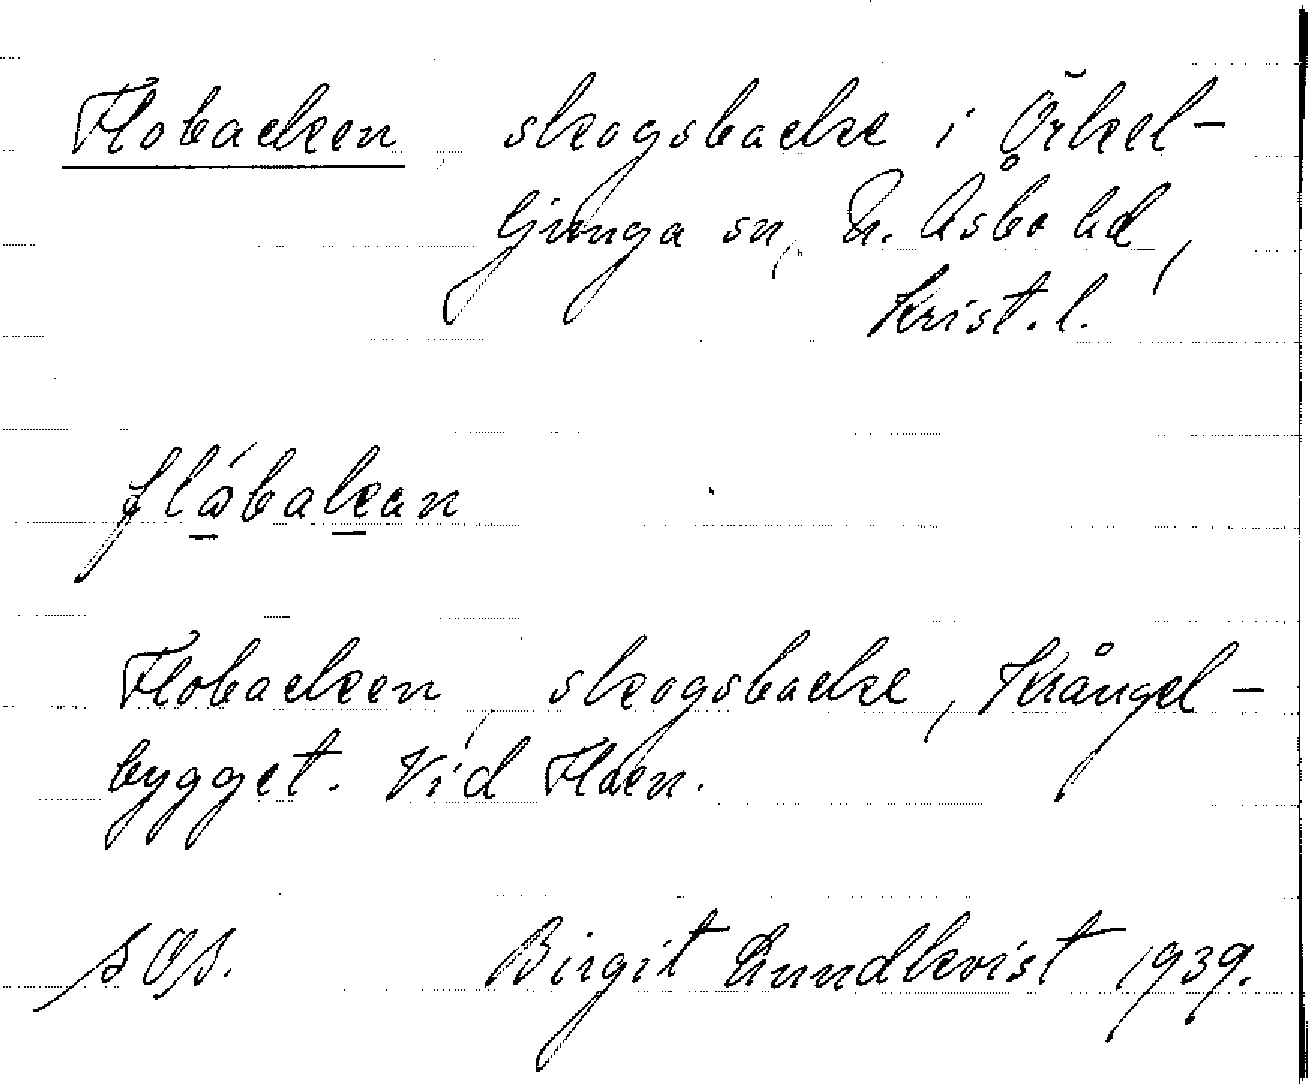 Flobacken, skogsbacke i Örkel-
ljunga sn, N. Åsbo hd,
Krist. l.
flåbakan
Flobacken, skogsbacke, Krångel-
bygget. Vid Floen.
SOS. Birgit Lundkvist 1939.